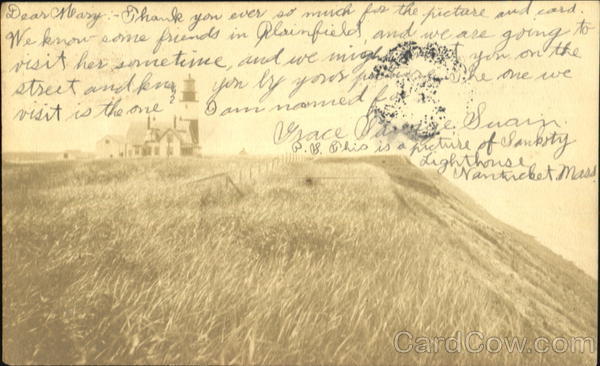 Dear Mary:- Thank you ever so much for the picture and card.
We know some friends in Plainfield, and we are going to
visit her sometime, and we might you on the
street and know you by your picture. The one we
visit is the one I am named
Grace Swain.
P.S. This is a picture of Sankoty
Lighthouse,
Nantucket, Mass.
CardCow.com